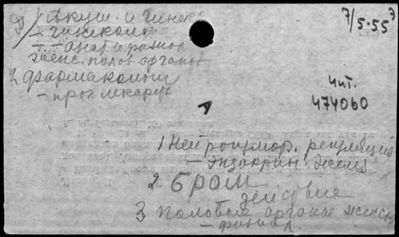 1) Акуш. и гинек.
гинекол.
– – анат. и физиол.
женс. полов. органов
2 Фармакологи
– прог. лекарств
7/5·55
Чит.
474060
А
1 Нейрогумор. регуляция
– Эндокрин. желез
2 Бром
– действие
3 Половые органы женск.
– физиол